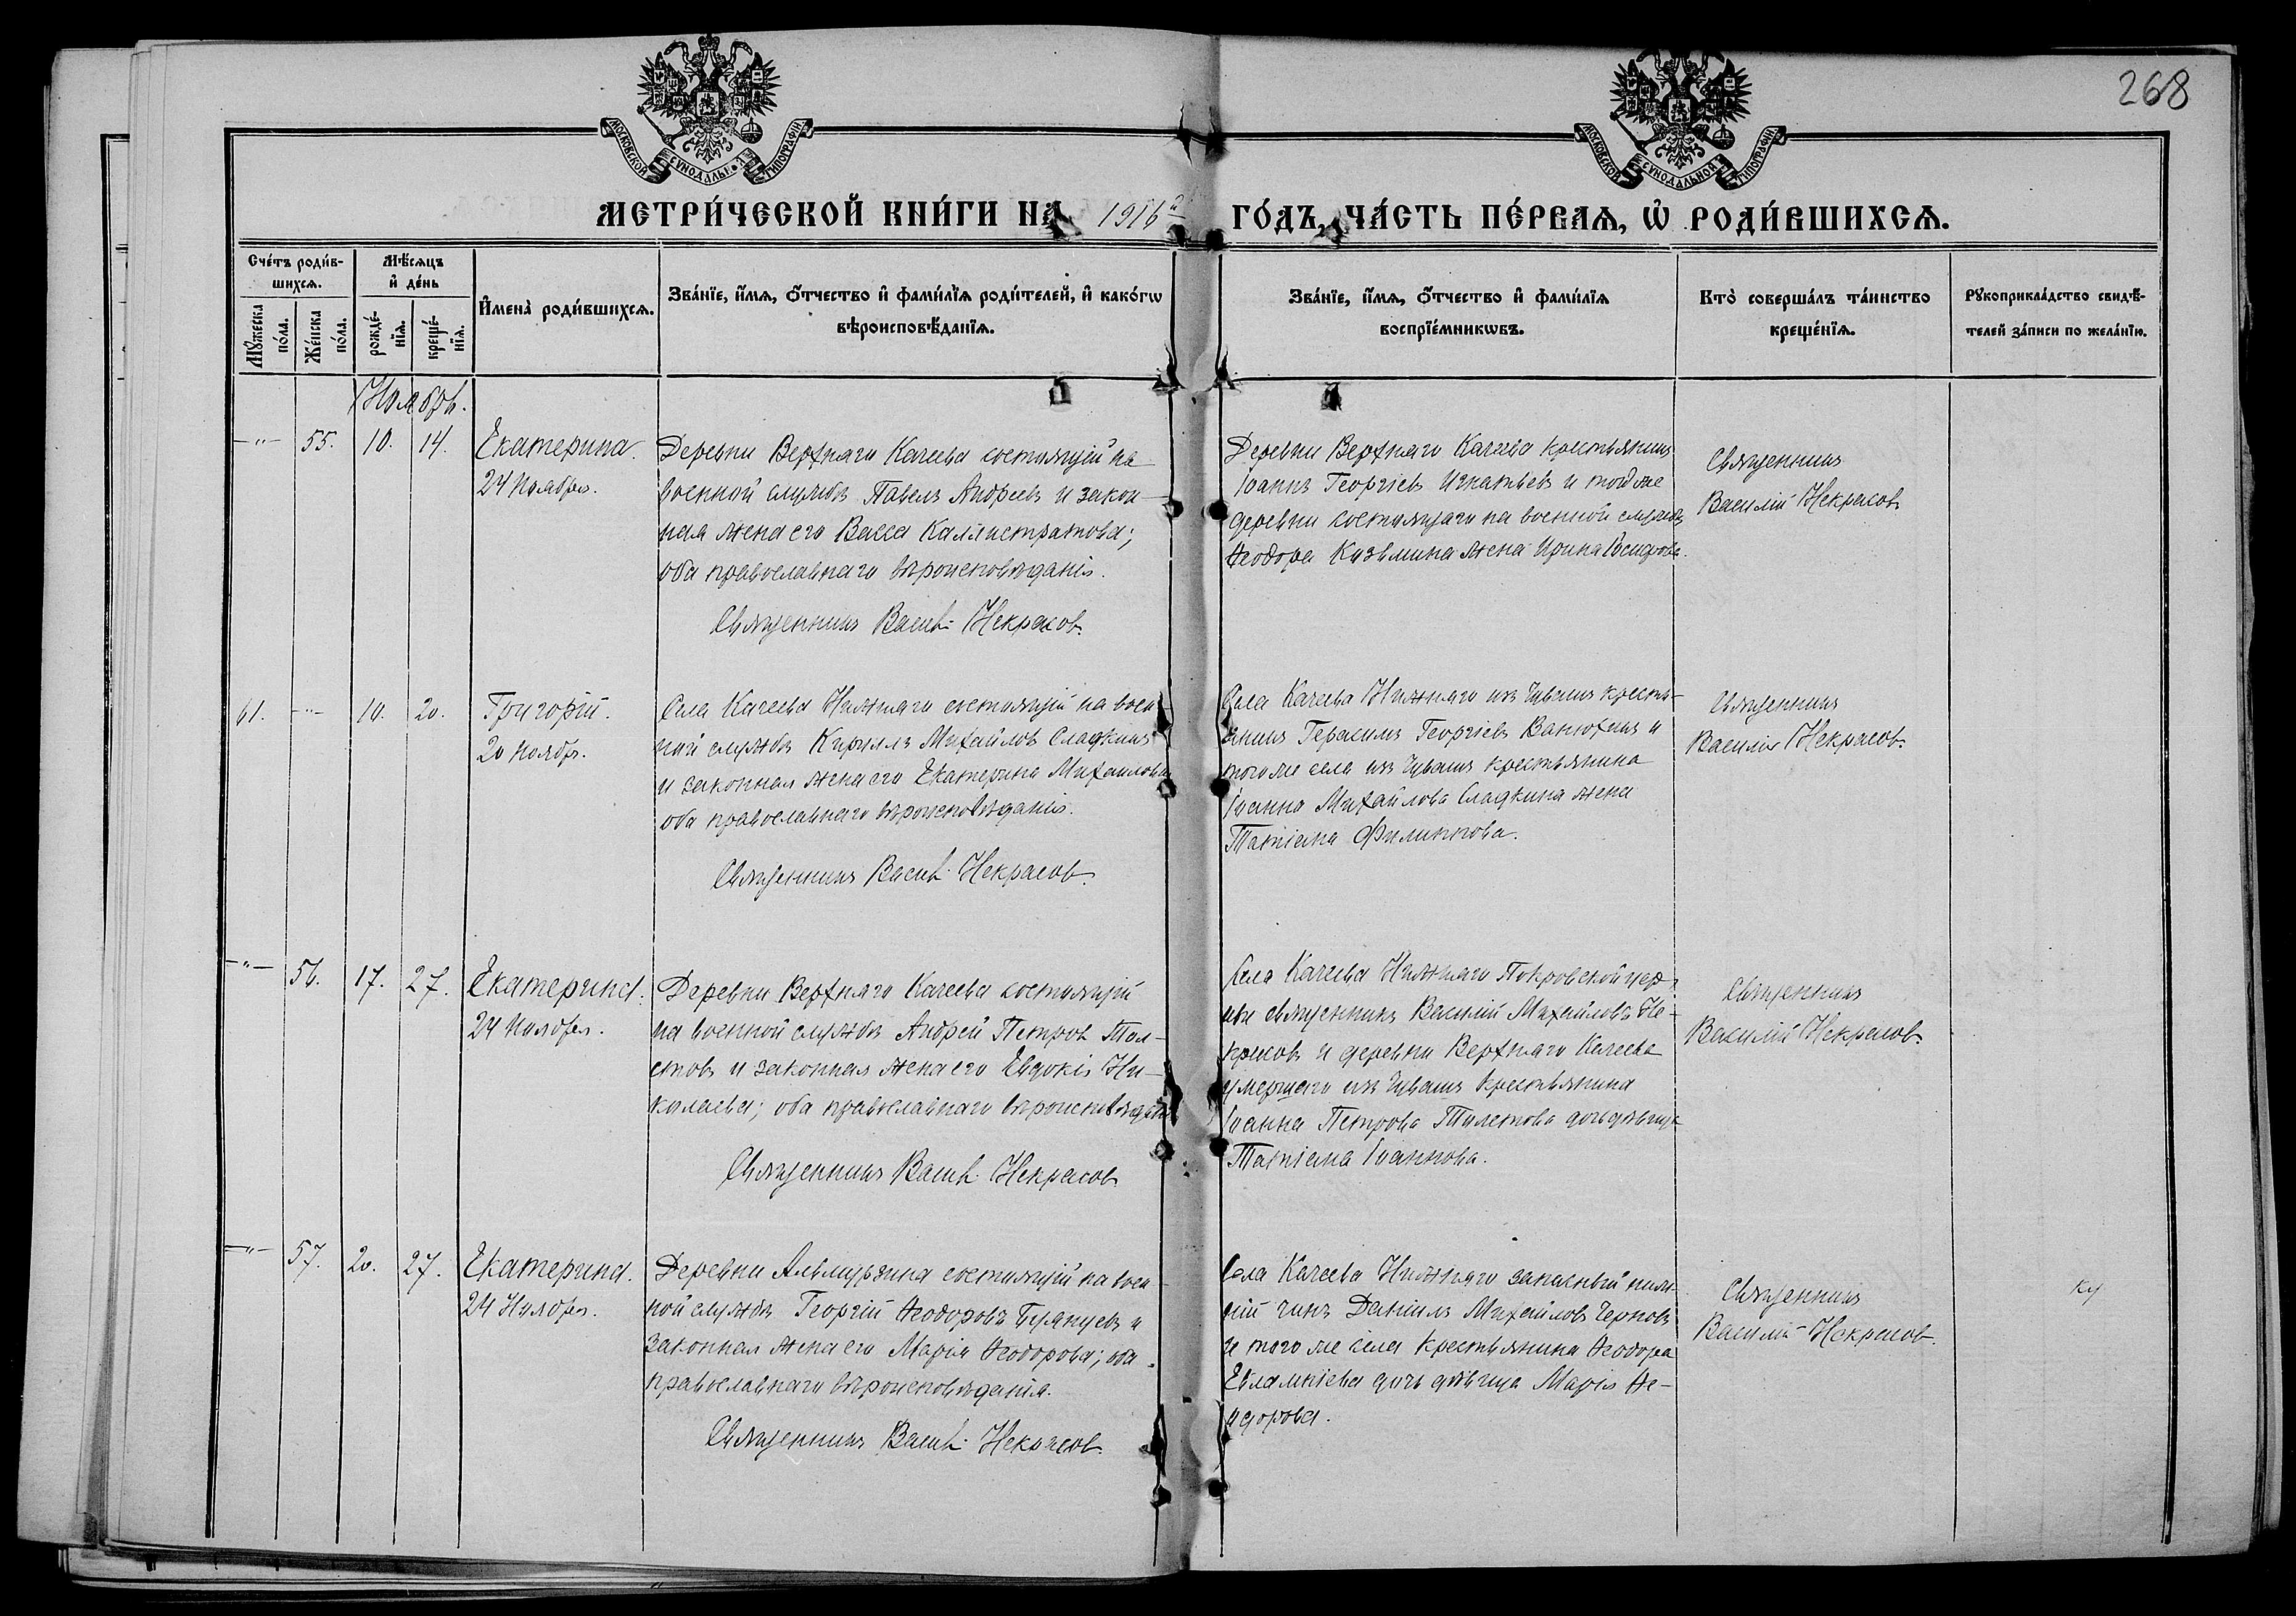 268
МОСКОВСКОЙ СѴНОДАЛЬНОЙ ТИПОГРАФІИ
МОСКОВСКОЙ СѴНОДАЛЬНОЙ ТИПОГРАФІИ
МЕТРИ́ЧЕСКОЙ КНИ́ГИ НА 1916й ГО́ДЪ, ЧА́СТЬ ПЕ́РВАѦ, Ѡ РОДИ́ВШИХСѦ.
Сче́тъ роди́в-
шихсѧ.
Мꙋ́жеска по́ла.
Же́нска по́ла.
Мѣ́сѧцъ
и де́нь
рожде́-
нїѧ.
креще́-
нїѧ.
И́мена̀ роди́вшихсѧ.
Зва́нїе, и́мѧ, ѻ́тчество и фами́лїѧ роди́телей, и како́гѡ
вѣроисповѣ́данїѧ.
Зва́нїе, и́мѧ, ѻ́тчество и фами́лїѧ
воспрїе́мникѡвъ.
Кто̀ соверша́лъ та́инство
креще́нїѧ.
Рꙋкоприкла́дство свидѣ́-
телей за́писи по жела́нїю.
Ноябрь.
-"- 55. 10. 14. Екатерина.
24 Ноября.
Деревни Верхняго Качеева состоящій на
военной службѣ Павелъ Андреевъ и закон-
ная жена его Васса Каллистратова;
оба православнаго вѣроисповѣданія.
Священникъ Васил. Некрасовъ
Деревни Верхняго Качеева крестьянинъ
Іоаннъ Георгіевъ Игнатьевъ и той же
деревни состоящаго на военной службѣ
Ѳеодора Кузьмина жена Ирина
Священникъ
Василій Некрасовъ
61. -"- 10. 20. Григорій.
20 Ноября.
Села Качеева Нижняго состоящій на воен-
ной службѣ Кириллъ Михайловъ Сладкинъ
и законная жена его Екатерина Михаилова
оба православнаго вѣроисповѣданія.
Священникъ Васил. Некрасовъ.
Села Качеева Нижняго изъ Чувашъ кресть-
янинъ Герасимъ Георгіевъ Ванюхинъ и
того же села изъ Чувашъ крестьянина
Іоанна Михайлова Сладкина жена
Татіана Филиппова.
Священникъ
Василій Некрасовъ.
-"- 56. 17. 27. Екатерина.
24 Ноября.
Деревни Верхняго Качеева состоящій
на военной службѣ Андрей Петров Тол-
стовъ и законная жена его Евдокія Ни-
колаева; оба православнаго вѣроисповѣданія
Священникъ Васил. Некрасовъ
Села Качеева Нижняго Покровской цер-
кви священникъ Василій Михайловъ Не-
красовъ и деревни Верхняго Качеева
умершаго изъ Чувашъ крестьянина
Іоанна Петрова Толстова дочь дѣвица
Татіана Іоаннова.
Священникъ
Василій Некрасовъ.
-"- 57. 20. 27. Екатерина.
24 Ноября.
Деревни Альмурзина состоящій на воен-
ной службѣ Георгій Ѳеодоровъ и
законная жена его Марія Ѳеодорова; оба
православнаго вѣроисповѣданія.
Священникъ Васил. Некрасовъ.
Села Качеева Нижняго запасный ниж-
ній чинъ Даніилъ Михайловъ Черновъ
и того же села крестьянина Ѳеодора
Евлампіева дочь дѣвица Марія Ѳе-
одорова.
Священникъ
Василій Некрасовъ.